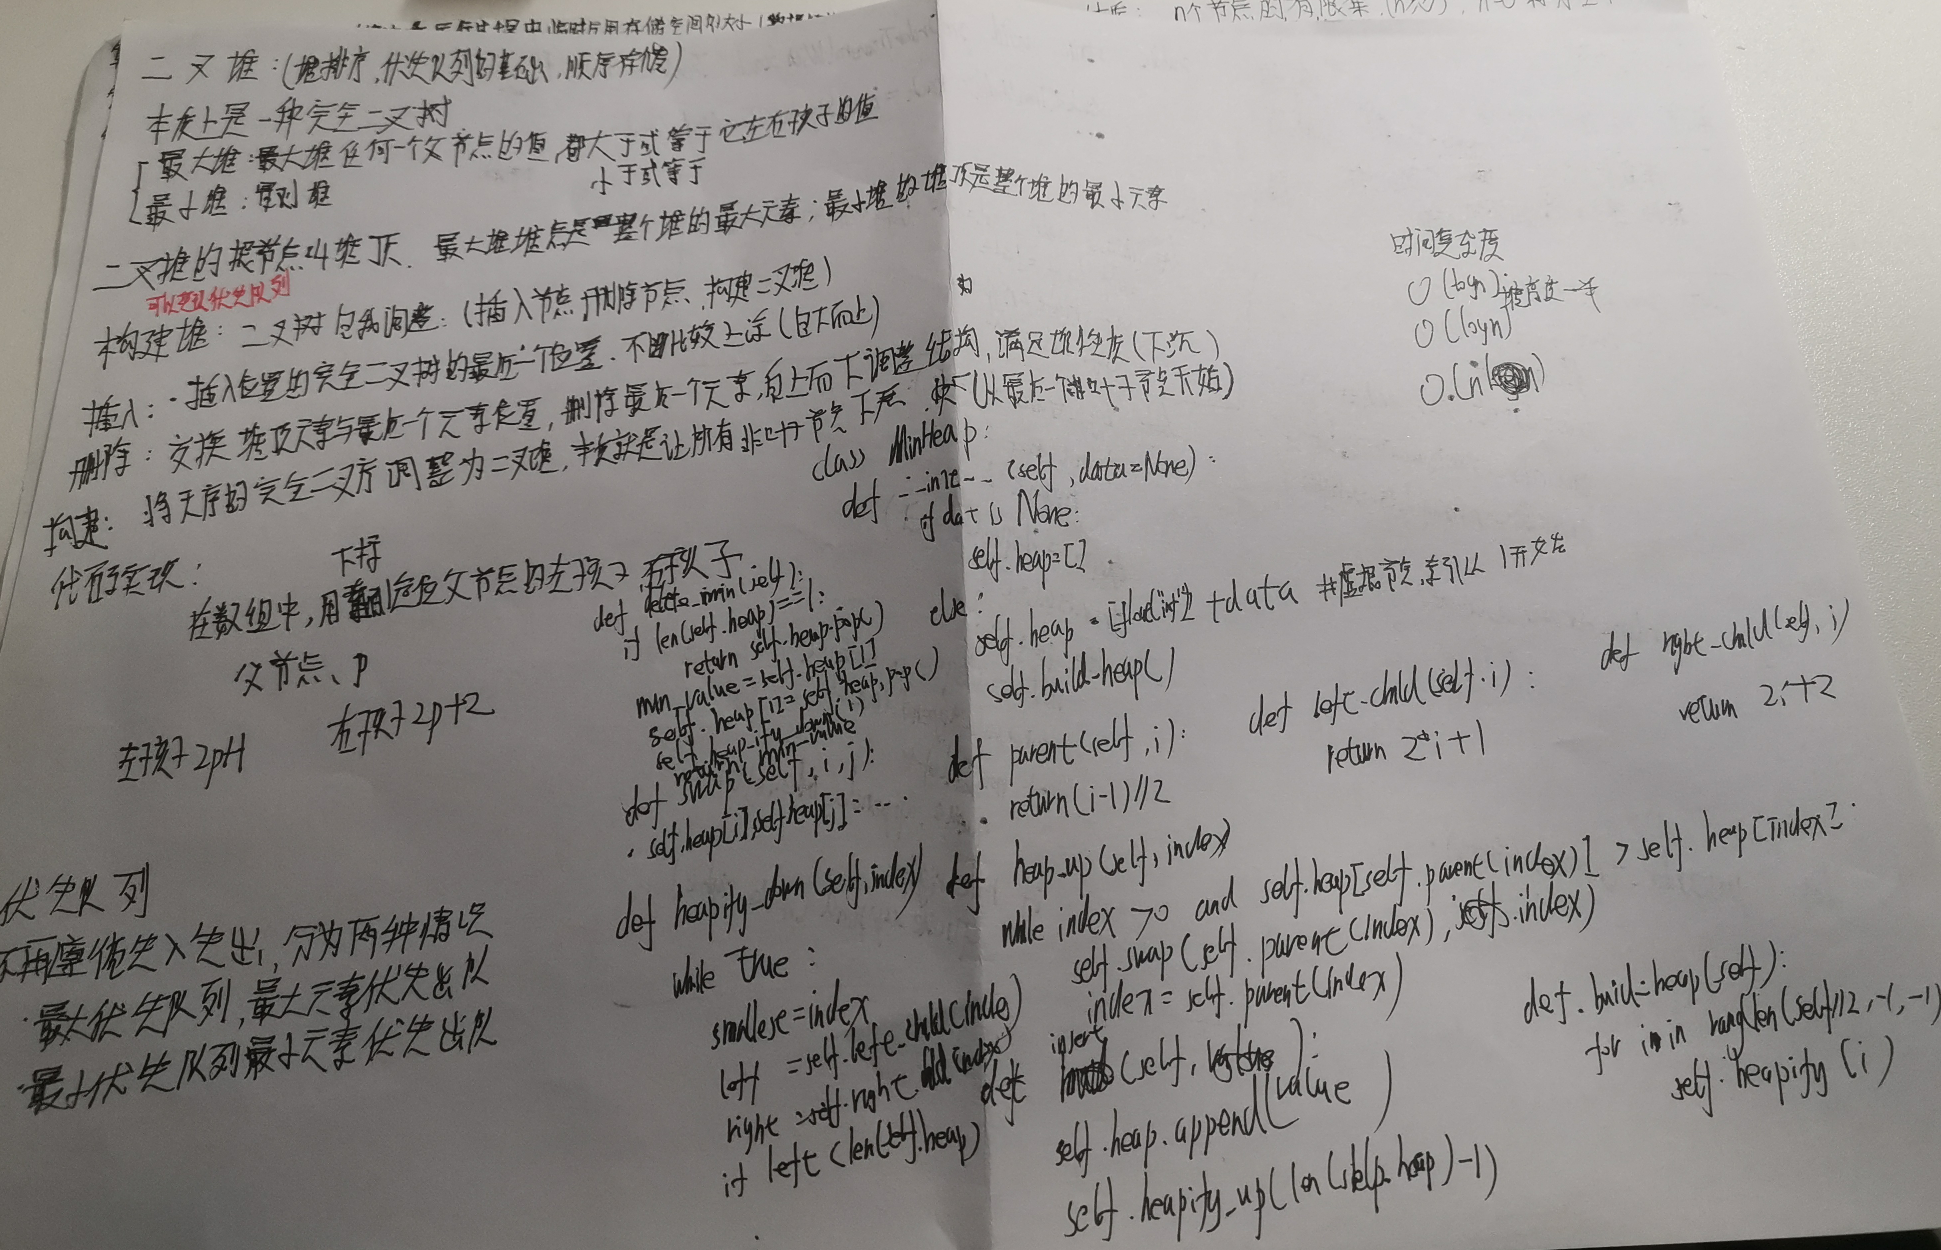 二叉堆:(堆排序,优先队列的基础,顺序存储)
本质上是一种完全二叉树
最大堆:最大堆任何一个父节点的值,都大于或等于它左右孩子的值
小于或等于
最小堆:
二叉堆的根节点叫堆顶.最大堆堆点是整个堆的最大元素;最小堆的堆顶是整个堆的最小元素
可以建议优先队列
构建堆:二叉树自我调整:(插入节点,删除节点、构建二叉堆)
插入:·插入位置的完全二叉树的最后一个位置.不断比较上浮(自下而上)
删除:交换堆顶元素与最后一个元素位置,删除最后一个元素,自上而下调整结构,满足堆性质(下沉)
构建:将无序的完全二叉树调整为二叉堆,本质就是让所有非叶子节点下沉.(从最后一个非叶子节点开始)
时间复杂度
O(logn)
O(logn)
O(n)
代码实现:
下标
在数组中,用定位父节点的左孩子,右孩子
父节点、p
左孩子2p+1
右孩子2p+2
class MinHeap:
def __init__(self,data=None):
if dat is None:
self.heap=[]
else:
self.heap=[float("inf")]+data #虚拟节点,索引从1开始
self.build-heap()
def delete_min(self):
if len(self.heap)==1:
return self.heap.pop()
min_value=self.heap[1]
self.heap[1]=self.heap.pop()
self.heap-ify_down(1)
return min-value
def swap(self,i,j):
self.heap[i],self.heap[j]=...
def parent(self,i):
return(i-1)//2
def left-child(self.i):
return 2*i+1
def right-child(self,i)
return 2i+2
def heapify_down(self,index)
while True:
smallese=index
left =self.left-child(inde)
right =self.right.child(index)
if left<len(self.heap)
def heap_up(self,index)
while index>0 and self.heap[self.parent(index)]>self.heap[index]:
self.swap(self.parent(index),self.index)
index=self.parent(index)
insert
def (self,):
self.heap.append(value)
self.heapify_up(len(self.heap)-1)
def.build-heap(self):
for i in rang(len(self)//2,-1,-1)
self.heapify(i)
优先队列
不再遵循先入先出,分为两种情况
·最大优先队列,最大元素优先出队
·最小优先队列最小元素优先出队